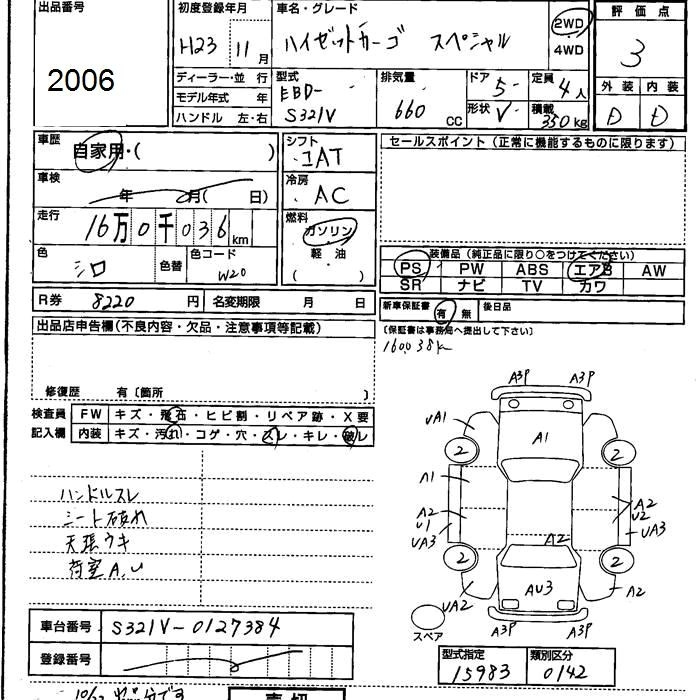 出品番号
2006
初度登録年月
H23 11月
車名・グレード
ハイゼットカーゴ スペシャル
2WD
4WD
評価点
3
外装 内装
D D
ディーラー・並行
モデル年式 年
ハンドル 左・右
型式
EBD-
S321V
排気量
660 cc
ドア 5
形状 V
定員 4人
積載 350kg
車歴
自家用・( )
車検
年 月( 日)
走行
16万0千036km
色
シロ
色替
色コード
W20
シフト
IAT
冷房
AC
燃料
ガソリン
軽油
( )
セールスポイント(正常に機能するものに限ります)
装備品(純正品に限り○をつけてください)
PS PW ABS エアB AW
SR ナビ TV カワ
R券 8220円
名変期限 月 日
新車保証書 有 無
後日品
(保証書は事務局へ提出して下さい)
160038k
出品店申告欄(不良内容・欠品・注意事項等記載)
修復歴 有〔箇所 〕
検査員
記入欄
FW キズ・飛石・ヒビ割・リペア跡・X要
内装 キズ・汚れ・コゲ・穴・スレ・キレ・破レ
ハンドルスレ
シート破れ
天張ウキ
荷室A.U
A3P A3P
UA1
A1
2 2
A1
A2
U1
UA3
A2
U2
UA3
A2
2 2
UA2
AU3
A2
スペア
A3P A3P
車台番号 S321V-0127384
登録番号
型式指定 類別区分
15983 0142